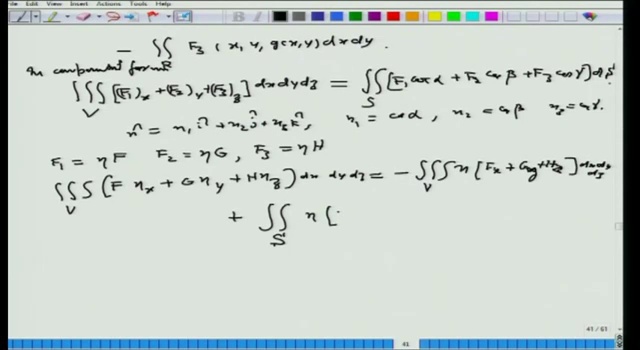 Edit View Insert Actions Tools Help
- ∬_R F₃ (x, y, g(x,y)) dx dy.
In component form
∭_V [(F₁)_x + (F₂)_y + (F₃)_z] dx dy dz = ∬_S [F₁ cos α + F₂ cos β + F₃ cos γ] dS
n̂ = n₁ î + n₂ ĵ + n₃ k̂, n₁ = cos α, n₂ = cos β n₃ = cos γ.
F₁ = ηF F₂ = ηG, F₃ = ηH
∭_V (F η_x + G η_y + H η_z) dx dy dz = - ∭_V η [F_x + G_y + H_z] dx dy dz
+ ∬_S η [
41 / 61
41